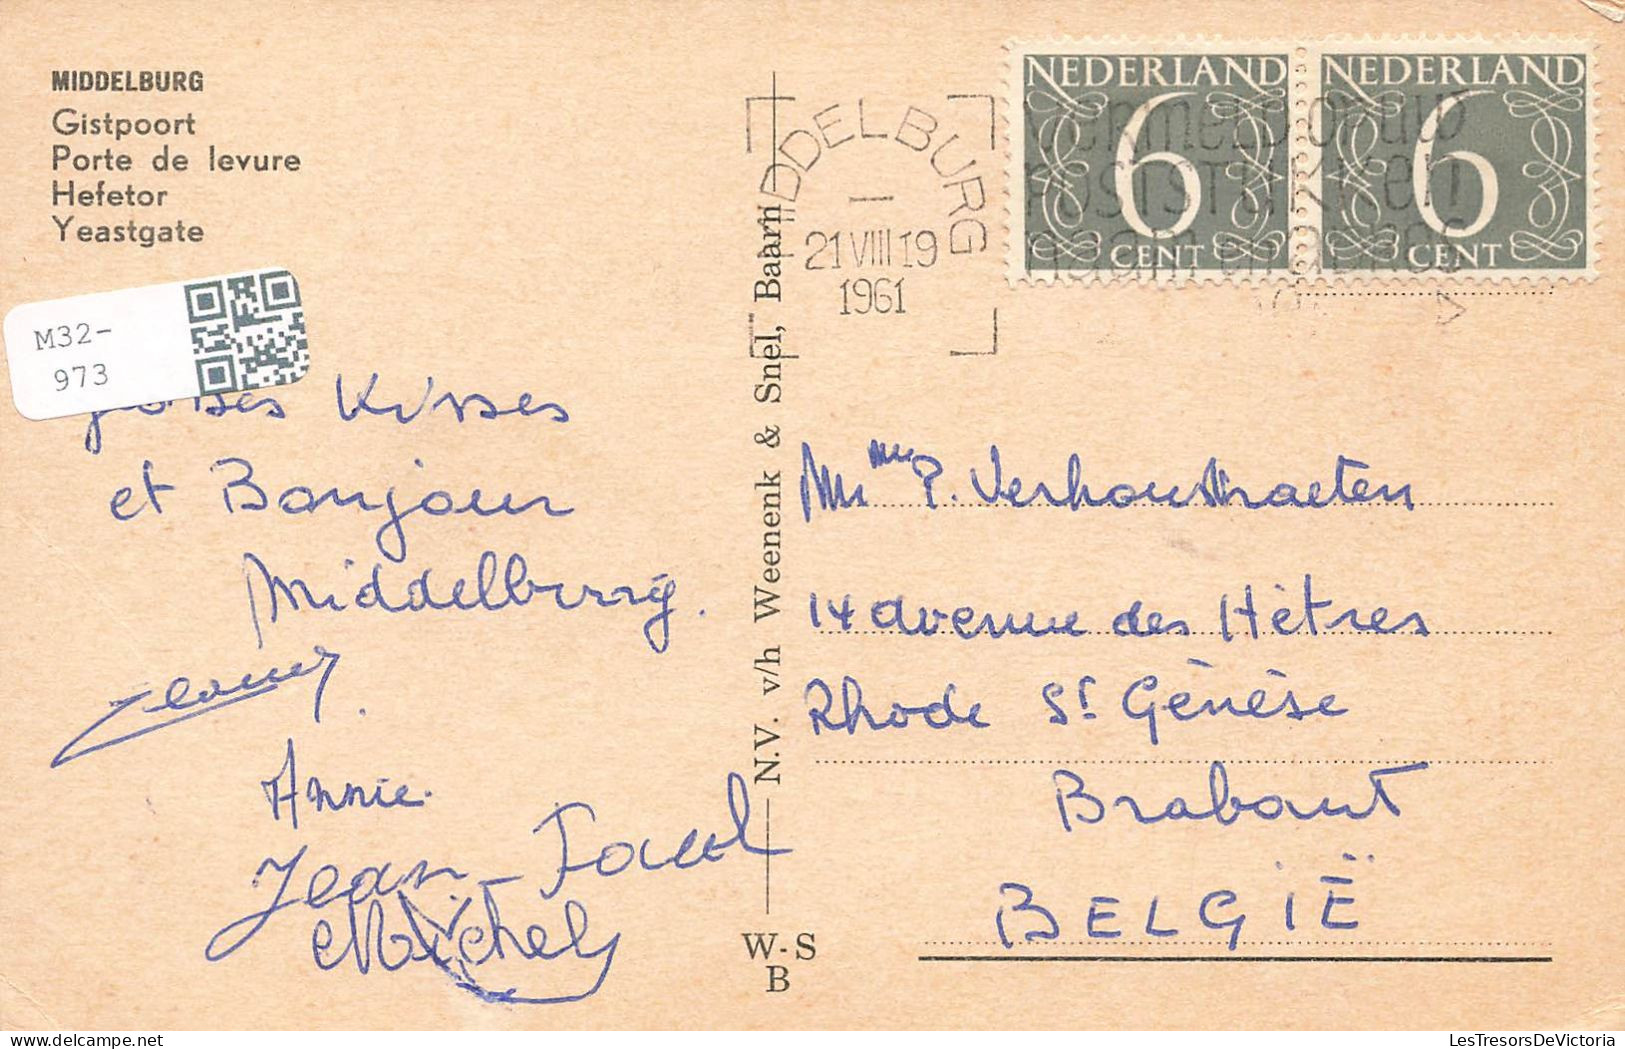 MIDDELBURG
Gistpoort
Porte de levure
Hefetor
Yeastgate
M32-
973
Kisses
et Bonjour
Middelburg.
Annie.
Jean-Paul
Michel
N.V. v/h Weenenk & Snel, Baarn
W-S
B
MIDDELBURG
21 VIII 19
1961
NEDERLAND
6
CENT
NEDERLAND
6
CENT
VERMELD OP UW
POSTSTUKKEN
naam en adres
P. Verhoustraeten
14 avenue des Hêtres
Rhode St. Génèse
Brabant
BELGIË
LesTresorsDeVictoria.com